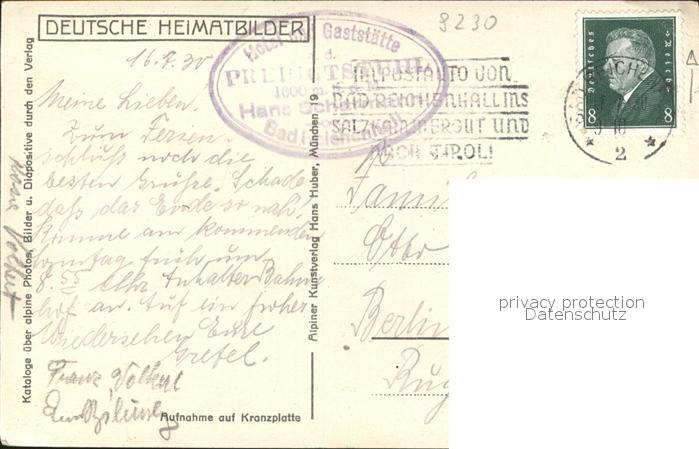 DEUTSCHE HEIMATBILDER
8230
16.9.30
Hotel und Gaststätte
d.
PREDIGTSTUHL
1600 m
Hans
Bad Reichenhall
IM POSTAUTO VON
BAD REICHENHALL INS
SALZKAMMERGUT UND
NACH TIROL!
Deutsches Reich
8 8
2
Meine Lieben!
Zum Ferien-
schluß noch die
besten Grüße. Schade
daß das Ende so nah!
Komme am kommenden
Sonntag früh um
8.55 Uhr Anhalter Bahn-
hof an. Auf ein frohes
Wiedersehen Eure
Gretel.
Franz Volkut
Aufnahme auf Kranzplatte
Kataloge über alpine Photos, Bilder u. Diapositive durch den Verlag
Alpiner Kunstverlag Hans Huber, München 19
Familie
Otto
Berlin
privacy protection
Datenschutz